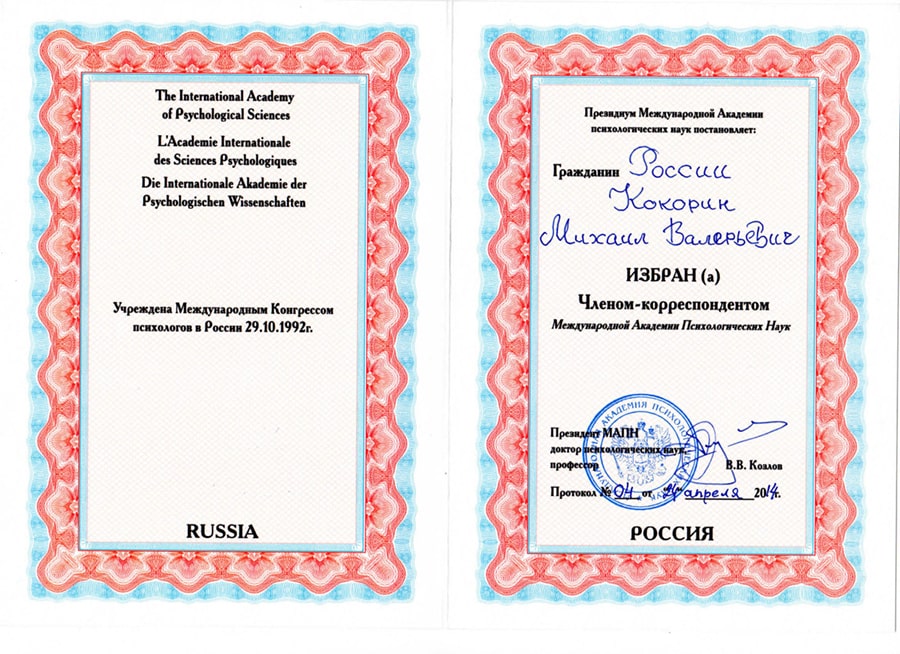 The International Academy
of Psychological Sciences
L'Academie Internationale
des Sciences Psychologiques
Die Internationale Akademie der
Psychologischen Wissenschaften
Учреждена Международным Конгрессом
психологов в России 29.10.1992г.
RUSSIA
Президиум Международной Академии
психологических наук постановляет:
Гражданин России
Кокорин
Михаил Валерьевич
ИЗБРАН (а)
Членом-корреспондентом
Международной Академии Психологических Наук
Президент МАПН
доктор психологических наук,
профессор В.В. Козлов
Протокол № 04 от апреля 2014г.
РОССИЯ